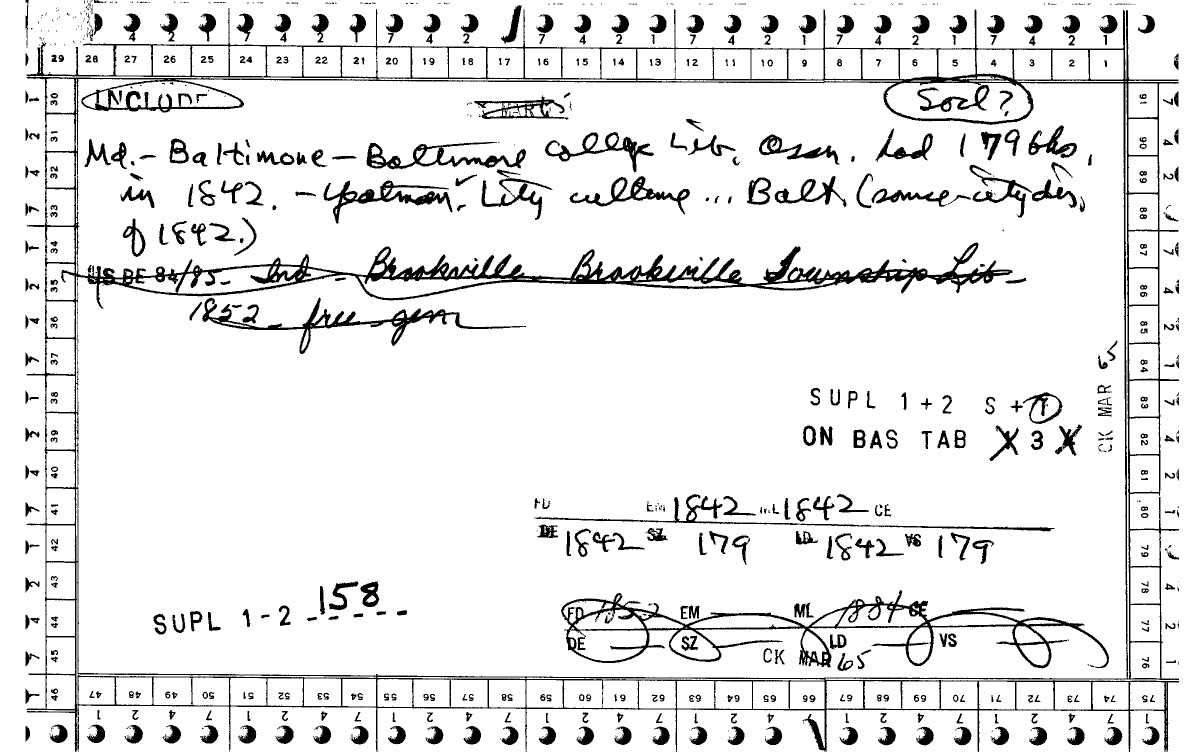 7 4 2 1 7 4 2 1 7 4 2 1 7 4 2 1 7 4 2 1
29 28 27 26 25 24 23 22 21 20 19 18 17 16 15 14 13 12 11 10 9 8 7 6 5 4 3 2 1
INCLUDE
Socl?
Md. - Baltimore - Baltimore College Lib. Assn. had 179 bks,
in 1842. - Yeatman, City culture ... Balt. (source - city dir.
of 1842.)
US BE 84/85 - Ind - Brookville - Brookville Township Lib -
1852 - free - gen
CK MAR 65
SUPL 1 + 2 S + 1
ON BAS TAB 3
FD EM 1842 ML 1842 CE
DE 1842 SZ 179 LD 1842 VS 179
SUPL 1 - 2 158
FD 1852 EM — ML 1884 CE —
DE — SZ — LD — VS —
CK MAR 65
30 31 32 33 34 35 36 37 38 39 40 41 42 43 44 45 46
91 90 89 88 87 86 85 84 83 82 81 80 79 78 77 76
47 48 49 50 51 52 53 54 55 56 57 58 59 60 61 62 63 64 65 66 67 68 69 70 71 72 73 74 75
1 2 4 7 1 2 4 7 1 2 4 7 1 2 4 7 1 2 4 7 1 2 4 7